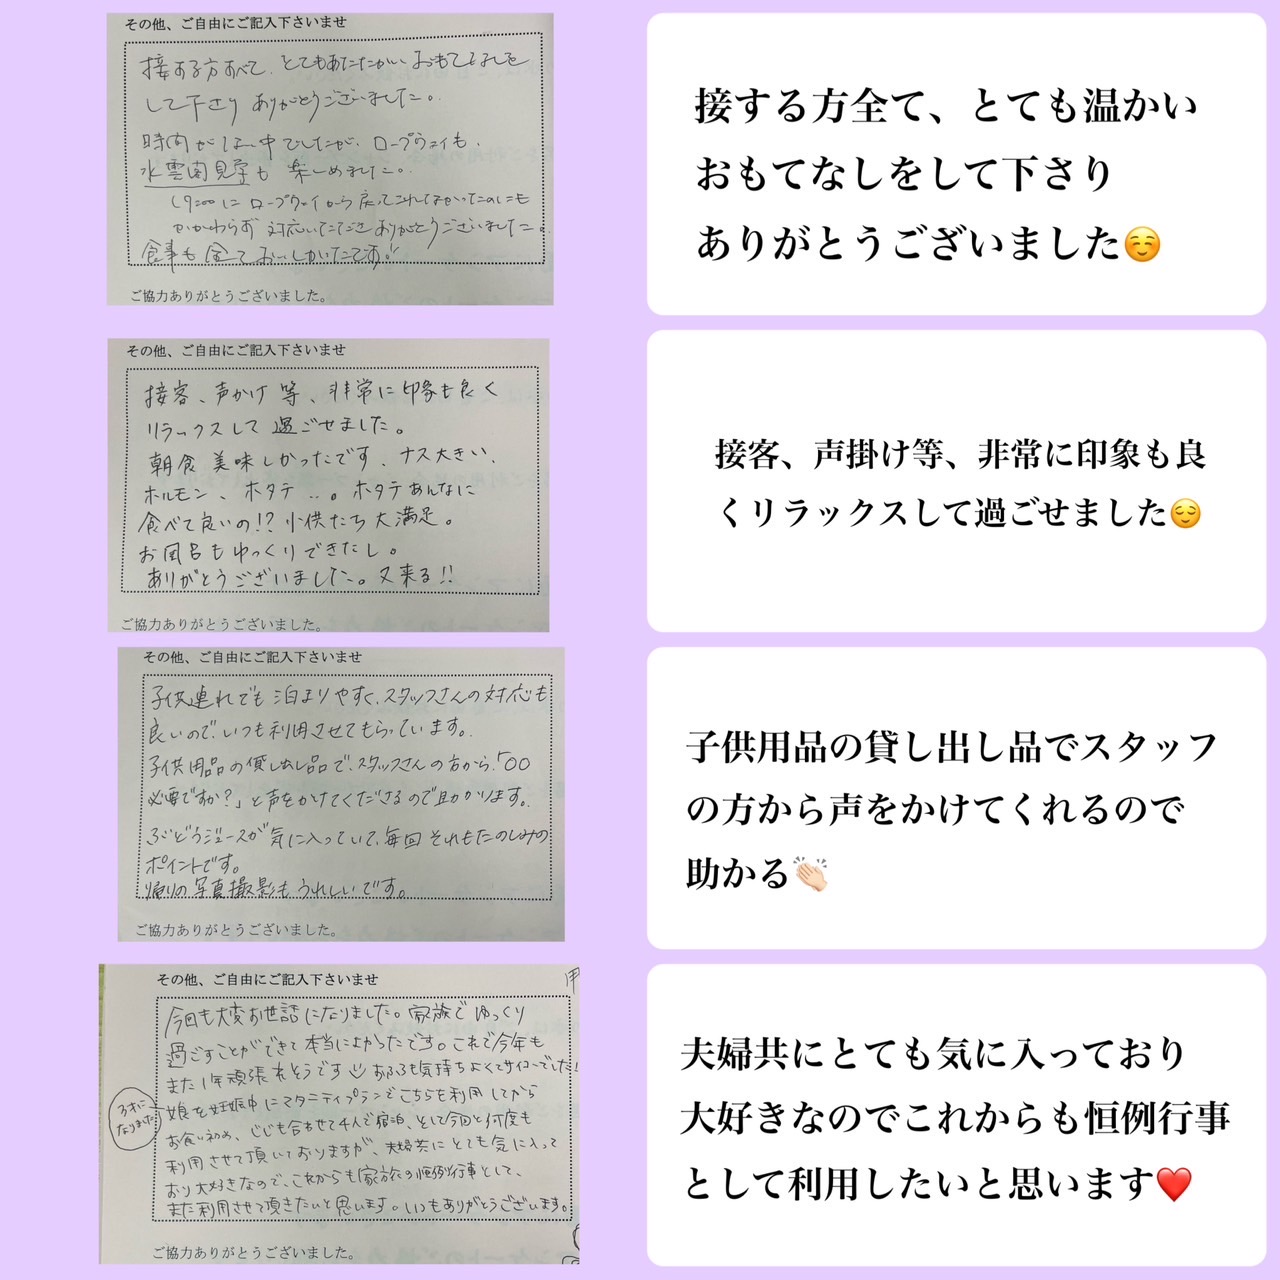 その他、ご自由にご記入下さいませ
接する方すべて、とてもあたたかい おもてなしを
して下さり ありがとうございました。
時間がない中でしたが、ロープウェイも、
水雲閣見学も 楽しめました。
にロープウェイから戻ってこれてなかったのにも
かかわらず 対応いただき ありがとうございました。
食事も 全て おいしかったです!
ご協力ありがとうございました。
接する方全て、とても温かい
おもてなしをして下さり
ありがとうございました☺️
その他、ご自由にご記入下さいませ
接客、声かけ 等、非常に印象も良く
リラックスして 過ごせました。
朝食 美味しかったです、ナス大きい、
ホルモン、ホタテ…。ホタテあんなに
食べて良いの!? 小供たち 大満足。
お風呂もゆっくりできたし。
ありがとうございました。又来る!!
ご協力ありがとうございました。
接客、声掛け等、非常に印象も良
くリラックスして過ごせました😌
その他、ご自由にご記入下さいませ
子供連れでも 泊まりやすく、スタッフさんの対応も
良いので、いつも利用させてもらっています。
子供用品の貸し出し品で、スタッフさんの方から、「○○
必要ですか?」と声をかけてくださるので助かります。
ぶどうジュースが気に入っていて、毎回 それもたのしみの
ポイントです。
帰りの写真撮影も うれしいです。
ご協力ありがとうございました。
子供用品の貸し出し品でスタッフ
の方から声をかけてくれるので
助かる👏🏻
その他、ご自由にご記入下さいませ
今回も大変お世話になりました。家族で ゆっくり
過ごすことができて 本当によかったです。これで今年も
また1年頑張れそうです おふろも気持ちよくてサイコーでした!
3才に
なりました
娘を妊娠中にマタニティプランでこちらを利用してから
お食い初め、じじも合わせて4人で宿泊、そして今回と何度も
利用させて頂いておりますが、夫婦共に とても気に入って
おり大好きなので、これからも家族の恒例行事として、
また利用させて頂きたいと思います。いつもありがとうございます。
ご協力ありがとうございました。
夫婦共にとても気に入っており
大好きなのでこれからも恒例行事
として利用したいと思います❤️